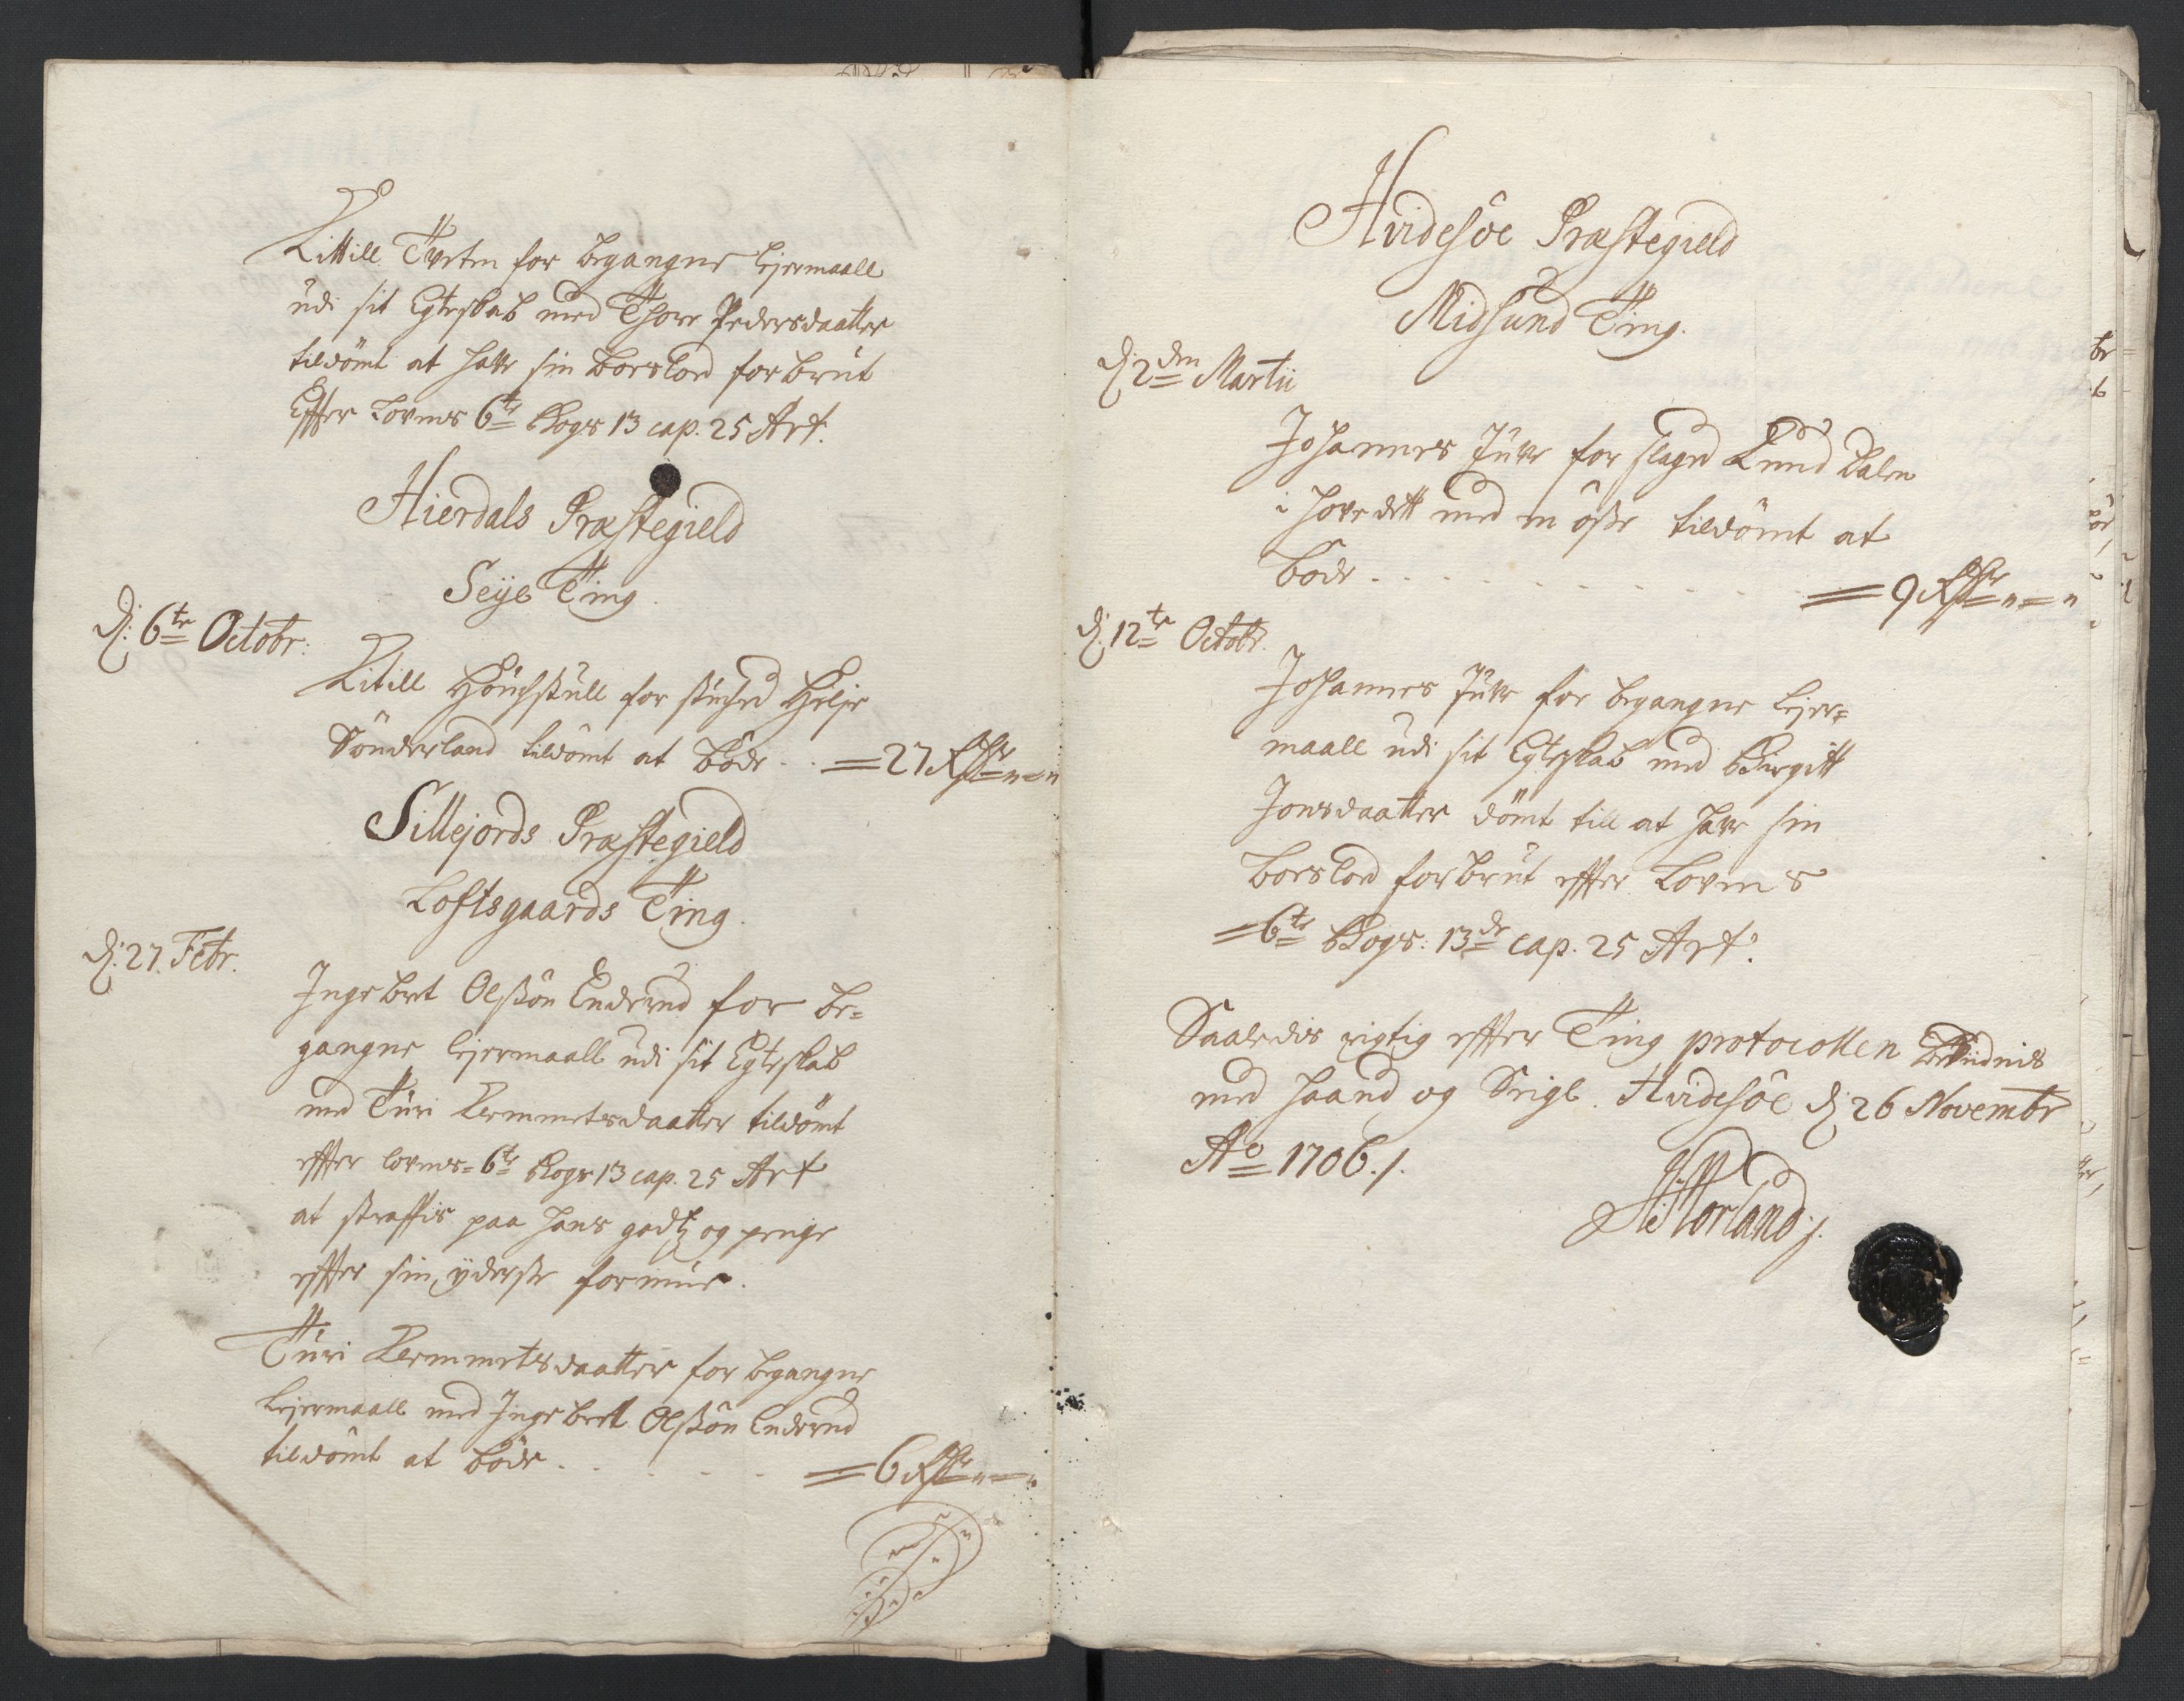 Kittill Tveten for begangne lejermaall
udi sit Egteskab med Thore Pedersdaatter
tildömt at have sin Boeslod forbrut
Effter Lovens 6te Bogs 13 cap. 25 Art.
Hierdals Præstegield
Seyle Ting
D: 6te Octobr:
Kitill Höuchstull for stuched Helje
Sönderland tildömt at böde .. = 27 Rdr „ = „
Sillejords Præstegield
Loftsgaards Ting
D: 27. Febr.
Ingebret Olßön Enderud for be=
gangne lejermaall udi sit Egteskab
med Turi Kemmetsdaatter tildömt
effter lovens = 6te Bogs 13 cap. 25 Art
at straffis paa hans godtz og penge
effter sin yderste formue.
Turi Kemmetsdaatter for begangne
lejermaall med Ingebret Olßön Enderud
tildömt at böde . . . . = 6 Rdr „ = „
Hvidesöe Præstegield
Midsund Ting.
D: 2den Martii
Johannes Juve for slaged Knud Dalen
i hovedett med en öxe tildömt at
böde . . . . . . = 9 Rdr „ = „
D: 12te Octobr.
Johannes Juve for begangne lejer=
maall udi sit Egteskab med Birgitt
Jonsdaatter dömt till at have sin
boeslod forbrut effter Lovens
= 6te Bogs: 13de cap. 25 Art:
Saaledis rigtig effter Ting protocollen Bekiidnis
med haand og Seigl. Hvidesöe D: 26 Novembr
Ao 1706 ./.
Morland